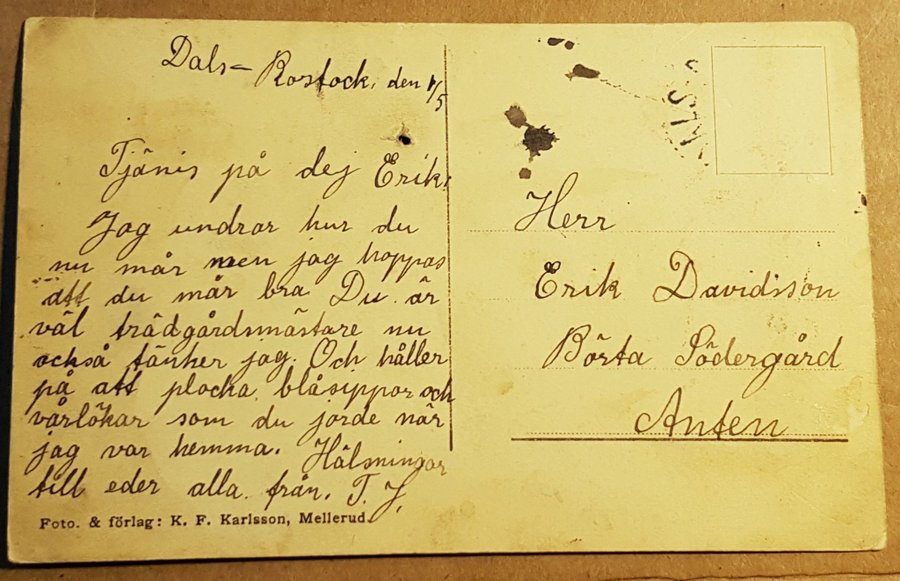 Dals-Rostock, den 1/5
Tjänis på dej Erik!
Jag undrar hur du
nu mår men jag hoppas
att du mår bra Du är
väl trädgårdsmästare nu
också tänker jag. Och håller
på att plocka blåsippor och
vårlökar som du jorde när
jag var hemma. Hälsningar
till eder alla från. T. J.
Foto. & förlag: K. F. Karlsson, Mellerud.
Herr
Erik Davidsson
Börta Södergård
Anten